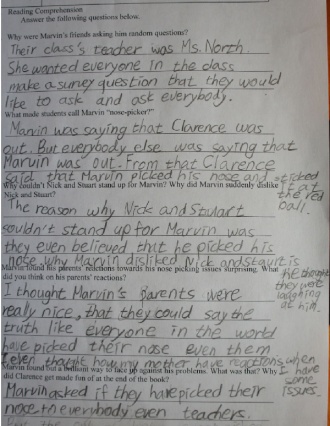 Reading Comprehension
Answer the following questions below.
Why were Marvin's friends asking him random questions?
Their class's teacher was Ms. North.
She wanted everyone in the class
make a survey question that they would
like to ask and ask everybody.
What made students call Marvin "nose-picker?"
Marvin was saying that Clarence was
out. But everybody else was saying that
Marvin was out. From that Clarence
said that Marvin picked his nose and sticked
it at the red ball.
Why couldn't Nick and Stuart stand up for Marvin? Why did Marvin suddenly dislike
Nick and Stuart?
The reason why Nick and Stuart
couldn't stand up for Marvin was
they even believed that he picked his
nose. Why Marvin disliked Nick and Staurt is
he thought they were laughing at him.
Marvin found his parents' reactions towards his nose picking issues surprising. What
did you think on his parents' reactions?
I thought Marvin's Parents were
really nice, that they could say the
truth like everyone in the world
have picked their nose even them
I even thought how my mother have reactions when
I have some issues.
Marvin found out a brilliant way to face up against his problems. What was that? Why
did Clarence get made fun of at the end of the book?
Marvin asked if they have picked their
nose to everybody even teachers.